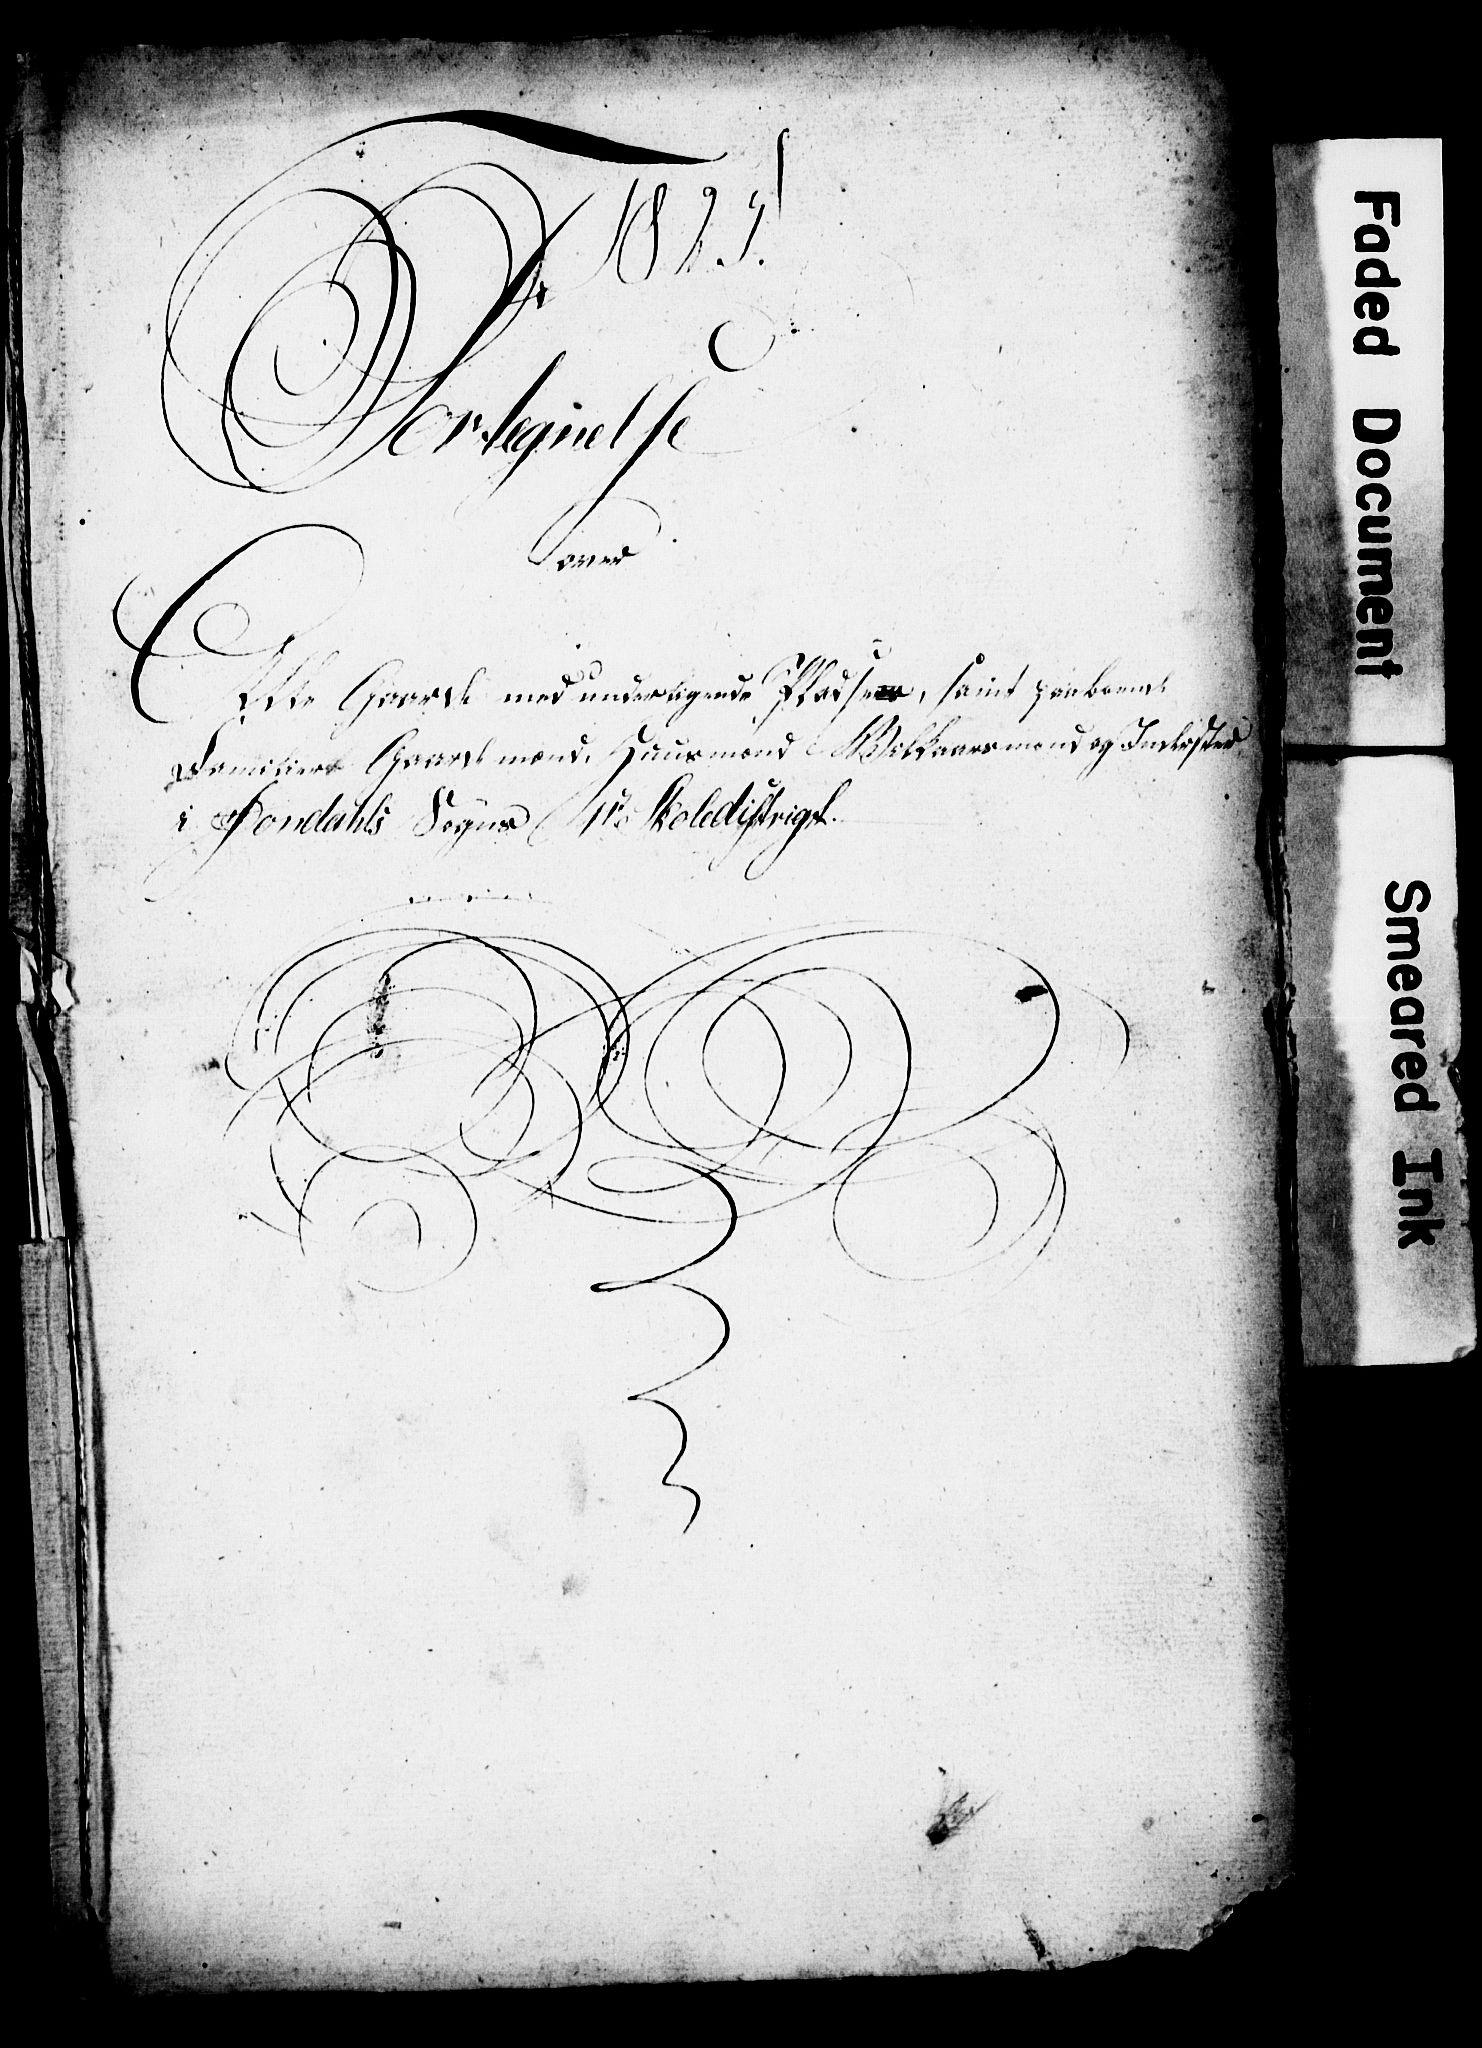 1825
Fortegnelse
over
Alle Gaarde med underligende Pladser, samt paaboende
Familier Gaardmænd, Huusmænd, Wilkaarsmænd og Inderster
i Søndahls Sogns 1te Skoledistrigt.
Faded Document
Smeared Ink